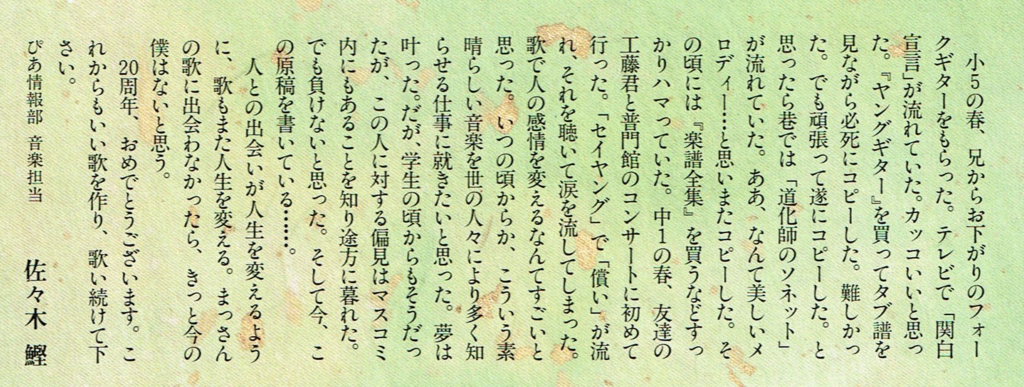 小5の春、兄からお下がりのフォー
クギターをもらった。テレビで「関白
宣言」が流れていた。カッコいいと思っ
た。『ヤングギター』を買ってタブ譜を
見ながら必死にコピーした。難しかっ
た。でも頑張って遂にコピーした。と
思ったら巷では「道化師のソネット」
が流れていた。ああ、なんて美しいメ
ロディー……と思いまたコピーした。そ
の頃には『楽譜全集』を買うなどすっ
かりハマっていた。中1の春、友達の
工藤君と普門館のコンサートに初めて
行った。「セイヤング」で「償い」が流
れ、それを聴いて涙を流してしまった。
歌で人の感情を変えるなんてすごいと
思った。いつの頃からか、こういう素
晴らしい音楽を世の人々により多く知
らせる仕事に就きたいと思った。夢は
叶った。だが、学生の頃からもそうだっ
たが、この人に対する偏見はマスコミ
内にもあることを知り途方に暮れた。
でも負けないと思った。そして今、こ
の原稿を書いている……。
人との出会いが人生を変えるよう
に、歌もまた人生を変える。まっさん
の歌に出会わなかったら、きっと今の
僕はないと思う。
20周年、おめでとうございます。こ
れからもいい歌を作り、歌い続けて下
さい。
ぴあ情報部 音楽担当 佐々木 鰹